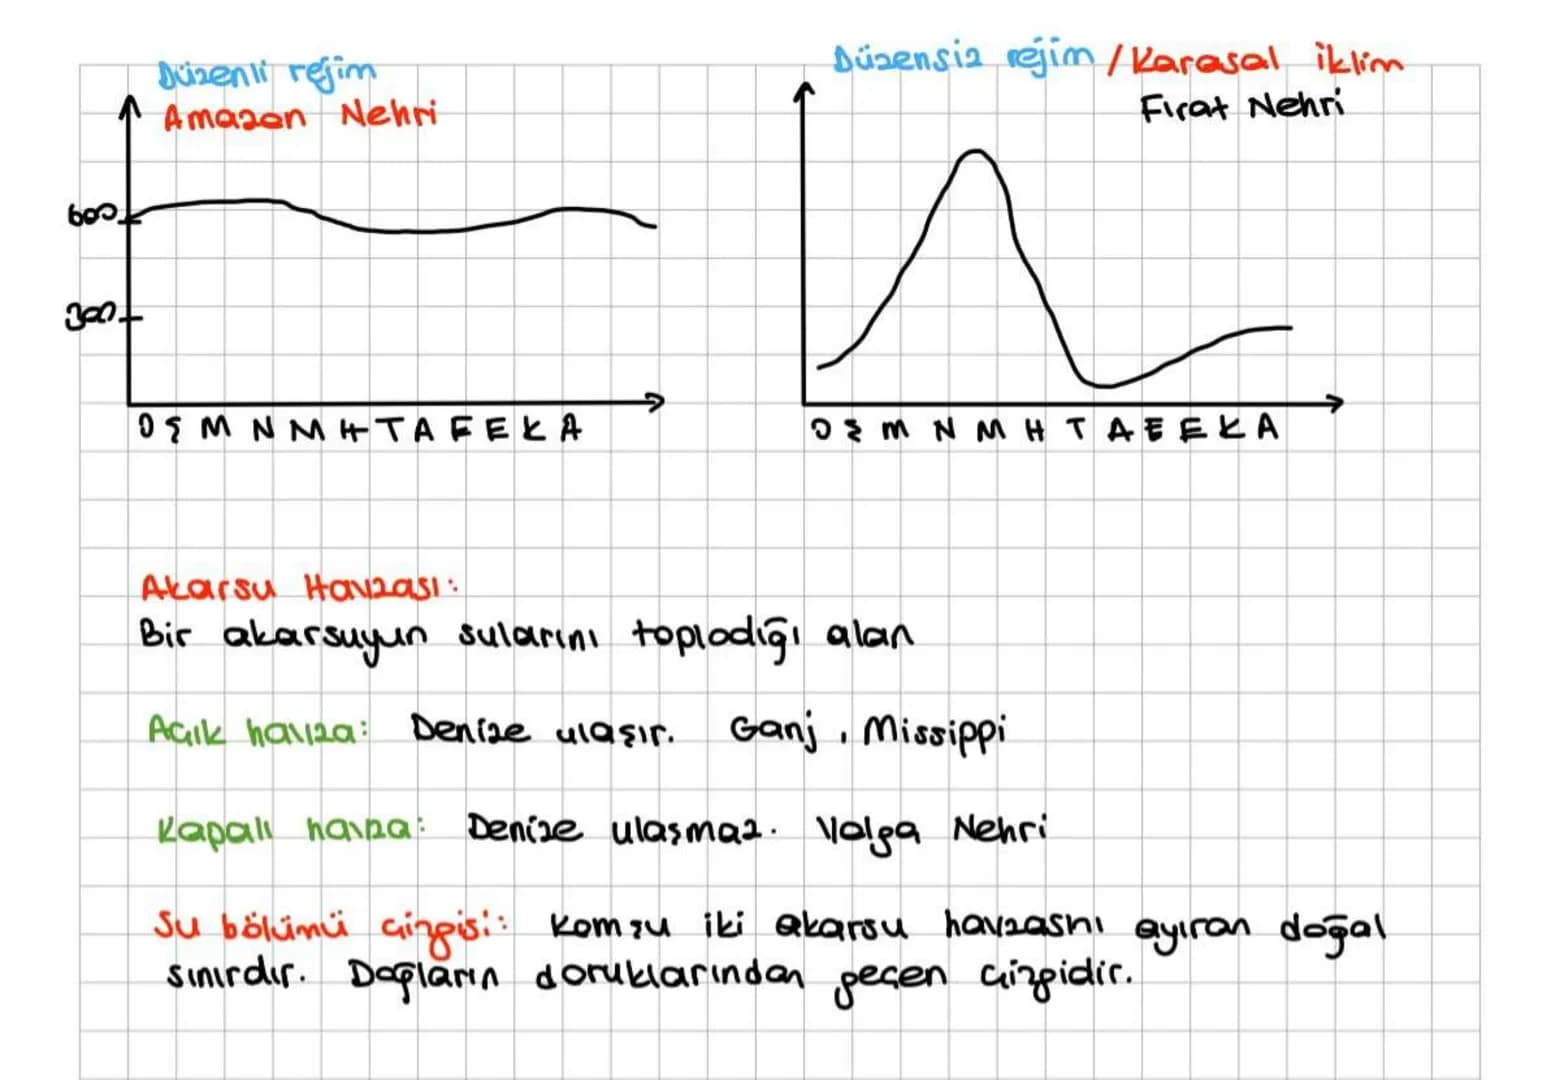 Düzenli rejim
Amazon Nehri
600
300
O Ş M N M H T A E E K A
Düzensiz rejim / Karasal iklim
Fırat Nehri
O Ş M N M H T A E E K A
Akarsu Havzası:
Bir akarsuyun sularını topladığı alan
Açık havza: Denize ulaşır. Ganj, Missippi
Kapalı havza: Denize ulaşmaz. Volga Nehri
Su bölümü çizgisi: Komşu iki akarsu havzasnı ayıran doğal
sınırdır. Dağların doruklarından geçen çizgidir.